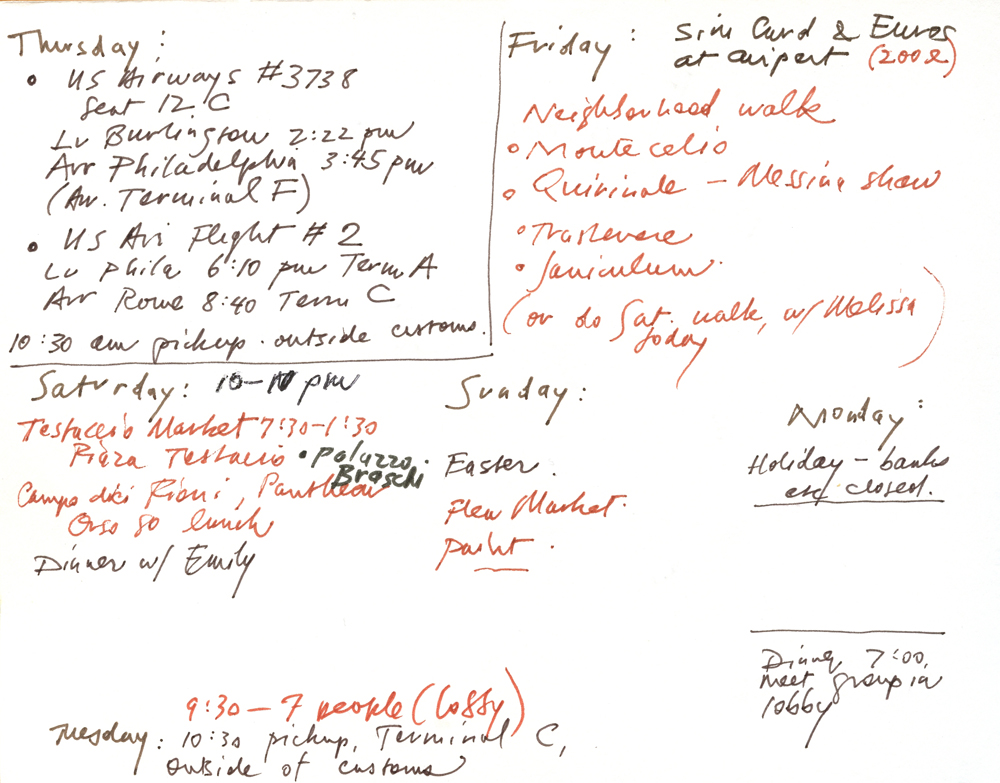 Thursday:
• US Airways #3738
Seat 12 C
Lv Burlington 2:22 pm
Arr Philadelphia 3:45 pm
(Arr. Terminal F)
• US Air Flight # 2
Lv Phila 6:10 pm Term A
Arr Rome 8:40 Term C
10:30 am pickup. outside customs.
Friday: Sim Card & Euros
at airport (200 )
Neighborhood walk
• Monte celio
• Quirinale – Messina show
• Trastevere
• Janiculum
(or do Sat. walk, w/ Melissa
today)
Saturday: 10–11 pm
Testaccio Market 7:30–1:30
Piazza Testaccio • Palazzo
Braschi
Campo dei Fiori, Pantheon
Orso 80 lunch
Dinner w/ Emily
Sunday:
Easter.
Flea Market.
paint.
Monday:
Holiday – banks
etc closed.
Dinner 7:00,
meet group in
lobby
9:30 – 7 people (lobby)
Tuesday: 10:30 pickup, Terminal C,
outside of customs